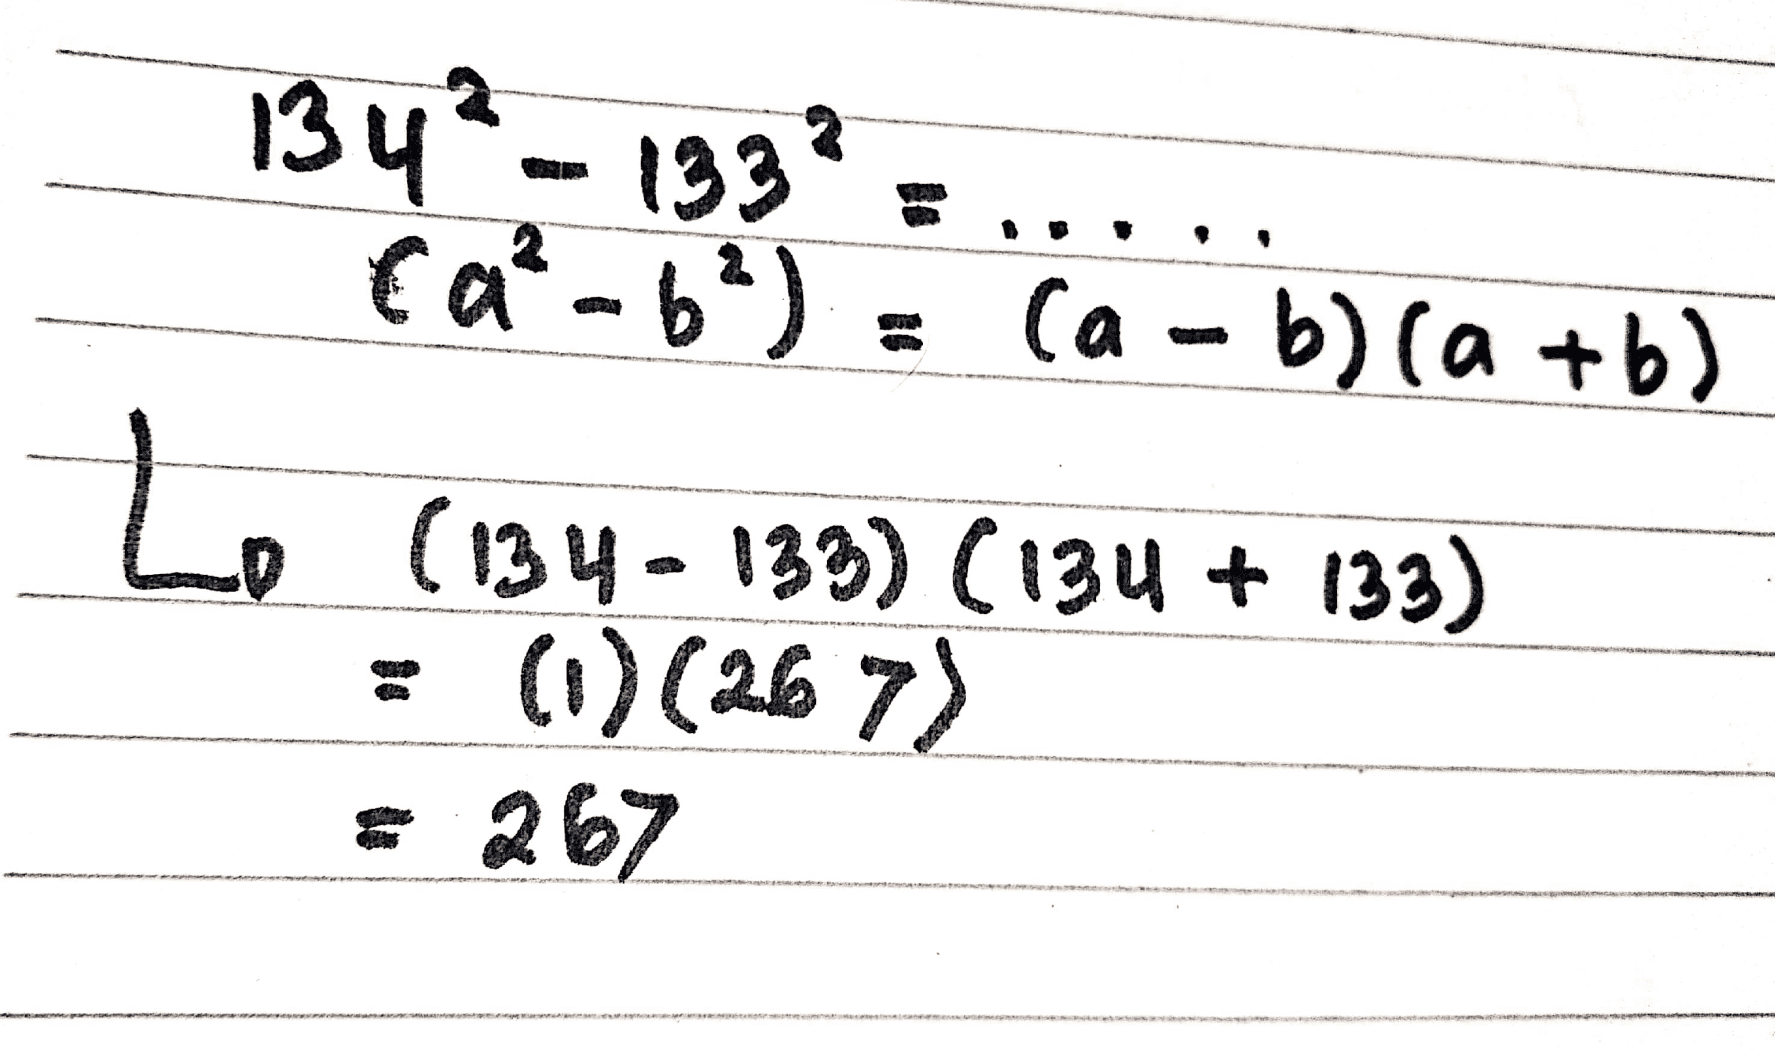 134² - 133² = .....
(a² - b²) = (a - b)(a + b)
(134 - 133) (134 + 133)
= (1)(267)
= 267